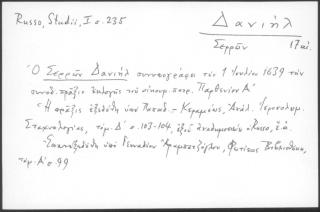 Russo, Studii, I σ. 235
Δανιήλ
Σερρῶν 17 αἰ.
Ὁ Σερρῶν Δανιήλ συνυπογράφει τήν 1 Ἰουλίου 1639 τήν
συνοδ. πρᾶξιν ἐκλογῆς τοῦ οἰκουμ. πατρ. Παρθενίου Α'
Ἡ πρᾶξις ἐξεδόθη ὑπό Παπαδ.-Κεραμέως, Ἀνάλ. Ἱεροσολυμ.
Σταχυολογίας, τόμ. Δ' σ. 103-104, ἐξ οὗ ἀναδημοσιεύει ὁ Russo, ἔ.ἀ.
Ἐπανεξεδόθη ὑπό Γενναδίου Ἀραμπατζόγλου, Φωτίειος Βιβλιοθήκη,
τόμ. Α' σ. 99